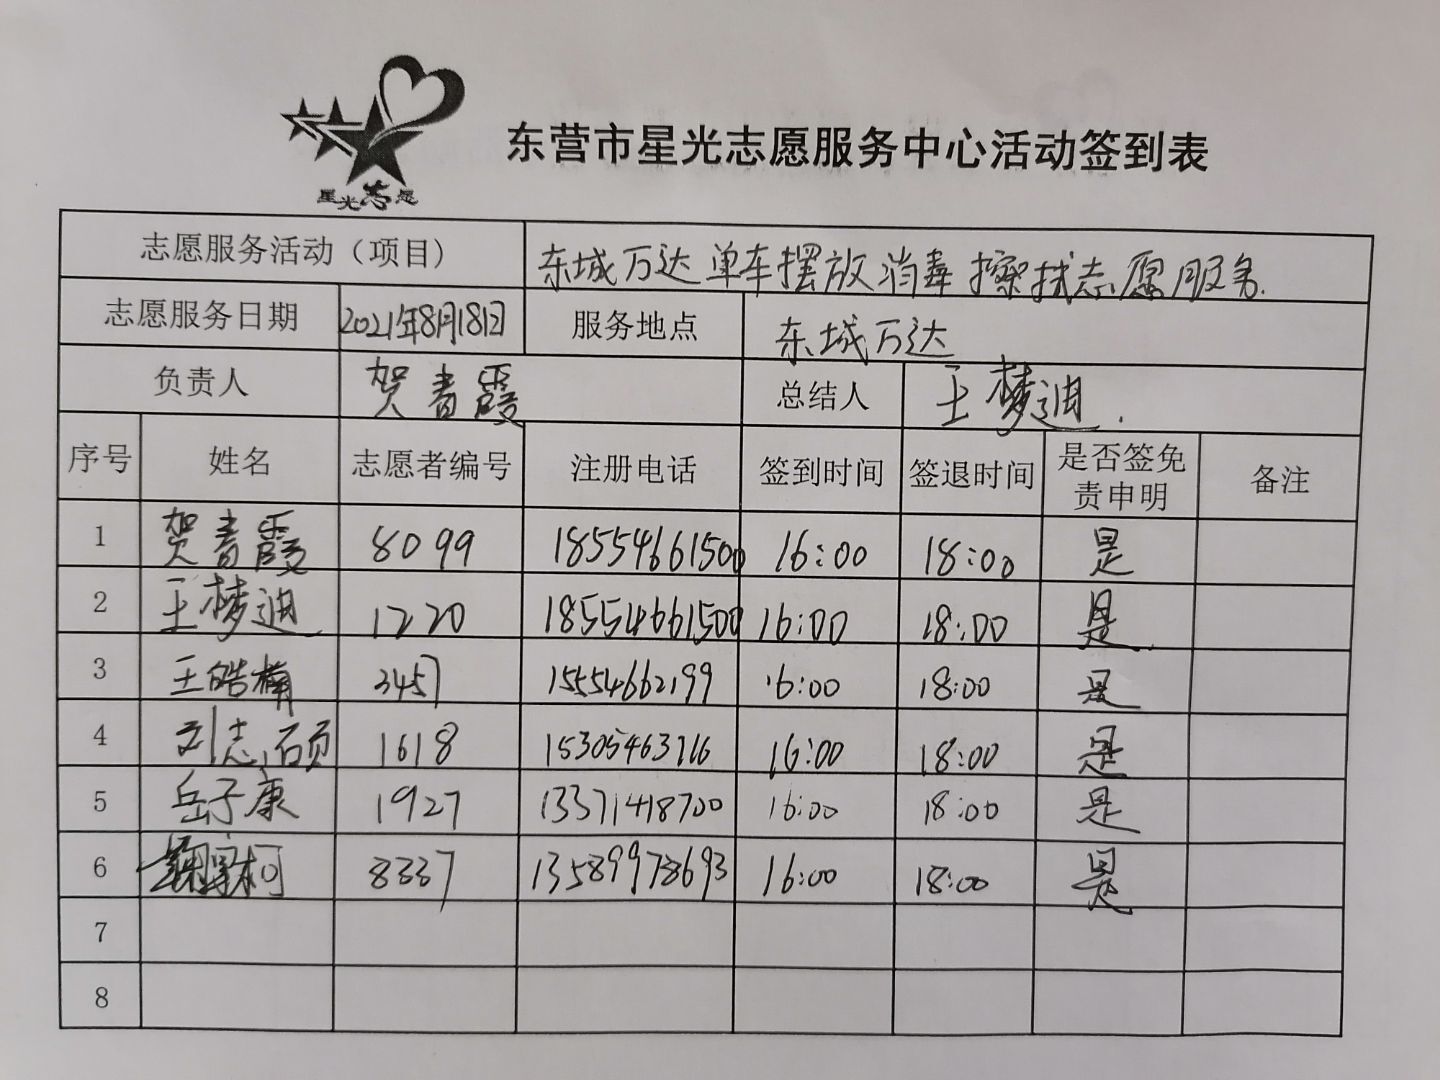 星光志愿
东营市星光志愿服务中心活动签到表
志愿服务活动（项目） 东城万达单车摆放消毒擦拭志愿服务.
志愿服务日期 2021年8月18日 服务地点 东城万达
负责人 贺青霞 总结人 王梦迪.
序号 姓名 志愿者编号 注册电话 签到时间 签退时间 是否签免责申明 备注
1 贺青霞 8099 18554661500 16:00 18:00 是
2 王梦迪 1220 18554661500 16:00 18:00 是
3 王皓楠 3457 15554662199 16:00 18:00 是
4 刘志硕 1618 16:00 18:00 是
5 岳子康 1927 13371418700 16:00 18:00 是
6 柯 8337 13589978693 16:00 18:00 是
7
8